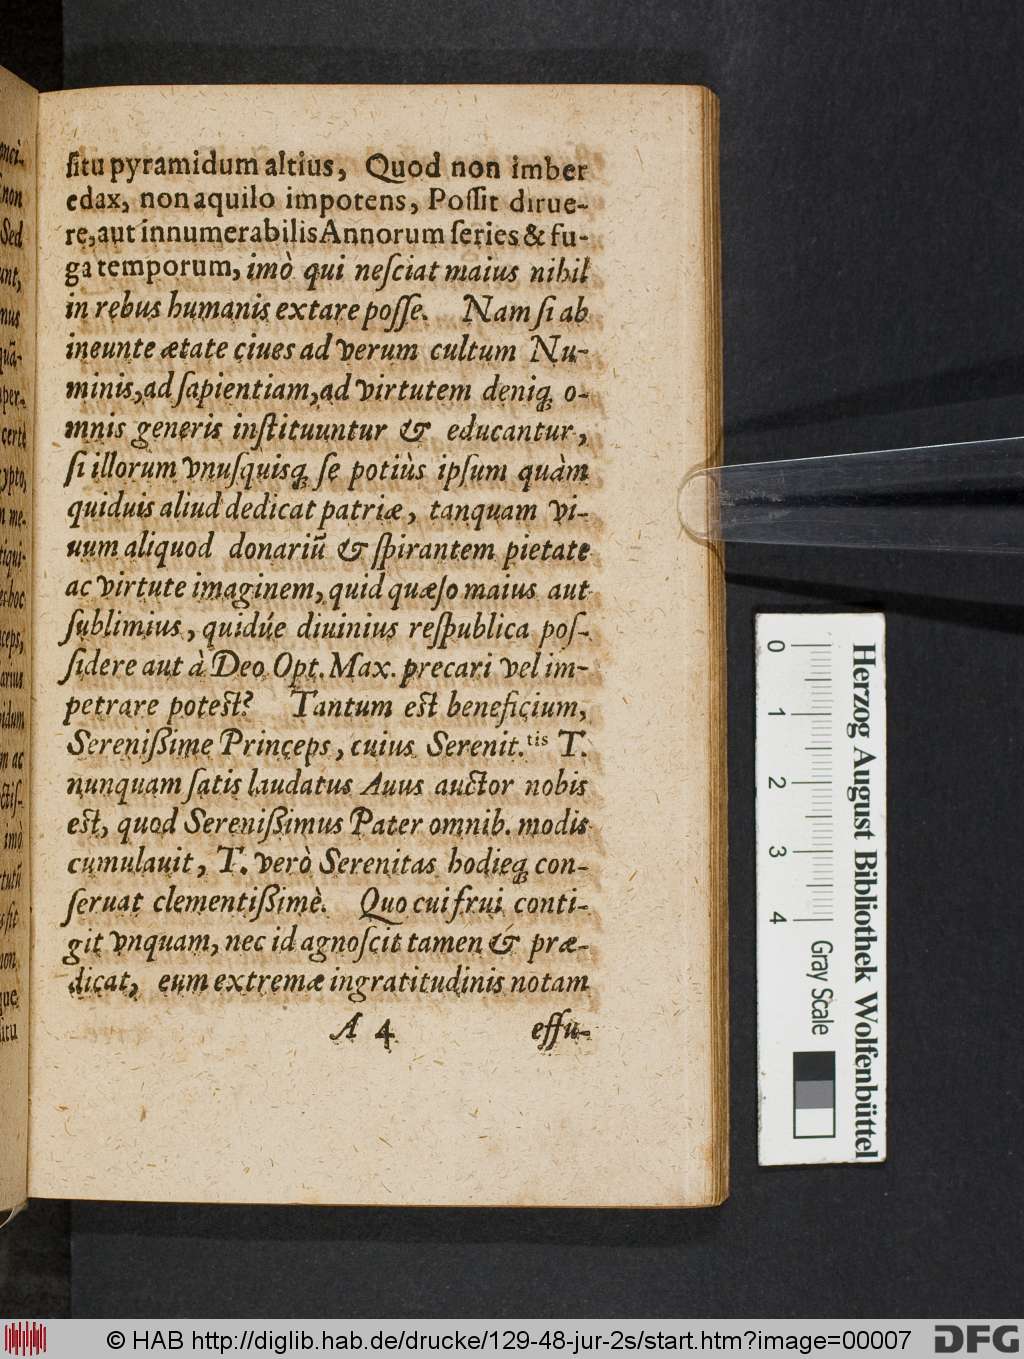 ſitu pyramidum altius, Quod non imber
edax, non aquilo impotens, Poſſit dirue-
re, aut innumerabilis Annorum ſeries & fu-
ga temporum, imò qui neſciat maius nihil
in rebus humanis extare poſſe. Nam ſi ab
ineunte ætate ciues ad verum cultum Nu-
minis, ad ſapientiam, ad virtutem deniq́; o-
mnis generis inſtituuntur & educantur,
ſi illorum vnuſquisq́; ſe potiùs ipſum quàm
quiduis aliud dedicat patriæ, tanquam vi-
uum aliquod donariũ & ſpirantem pietate
ac virtute imaginem, quid quæſo maius aut
ſublimius, quidúe diuinius reſpublica poſ-
ſidere aut à Deo Opt. Max. precari vel im-
petrare poteſt? Tantum eſt beneficium,
Serenißime Princeps, cuius Serenit.tis T.
nunquam ſatis laudatus Auus auctor nobis
eſt, quod Serenißimus Pater omnib. modis
cumulauit, T. verò Serenitas hodieq́; con-
ſeruat clementißimè. Quo cui frui conti-
git vnquam, nec id agnoſcit tamen & præ-
dicat, eum extremæ ingratitudinis notam
A 4 effu-
Herzog August Bibliothek Wolfenbüttel
0 1 2 3 4 Gray Scale
© HAB http://diglib.hab.de/drucke/129-48-jur-2s/start.htm?image=00007
DFG